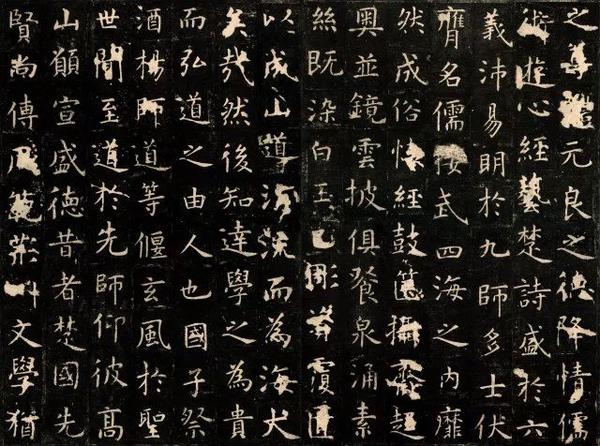 之尊禮元良之德降情儒
術遊心經藝楚詩盛於六
義沛易明於九師多士伏
膺名儒接武四海之內靡
然成俗懷經鼓篋攝齊趍
奧並鏡雲披俱飱泉涌素
絲既染白玉已彫資覆匱
以成山導涓流而為海大
矣哉然後知達學之為貴
而弘道之由人也國子祭
酒楊師道等偃玄風於聖
世聞至道於先師仰彼高
山顗宣盛德昔者楚國先
賢尚傳風範荊州文學猶